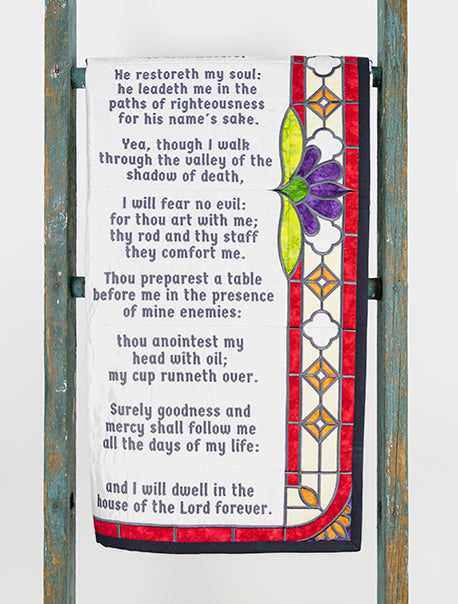 He restoreth my soul:
he leadeth me in the
paths of righteousness
for his name's sake.
Yea, though I walk
through the valley of the
shadow of death,
I will fear no evil:
for thou art with me;
thy rod and thy staff
they comfort me.
Thou preparest a table
before me in the presence
of mine enemies:
thou anointest my
head with oil;
my cup runneth over.
Surely goodness and
mercy shall follow me
all the days of my life:
and I will dwell in the
house of the Lord forever.